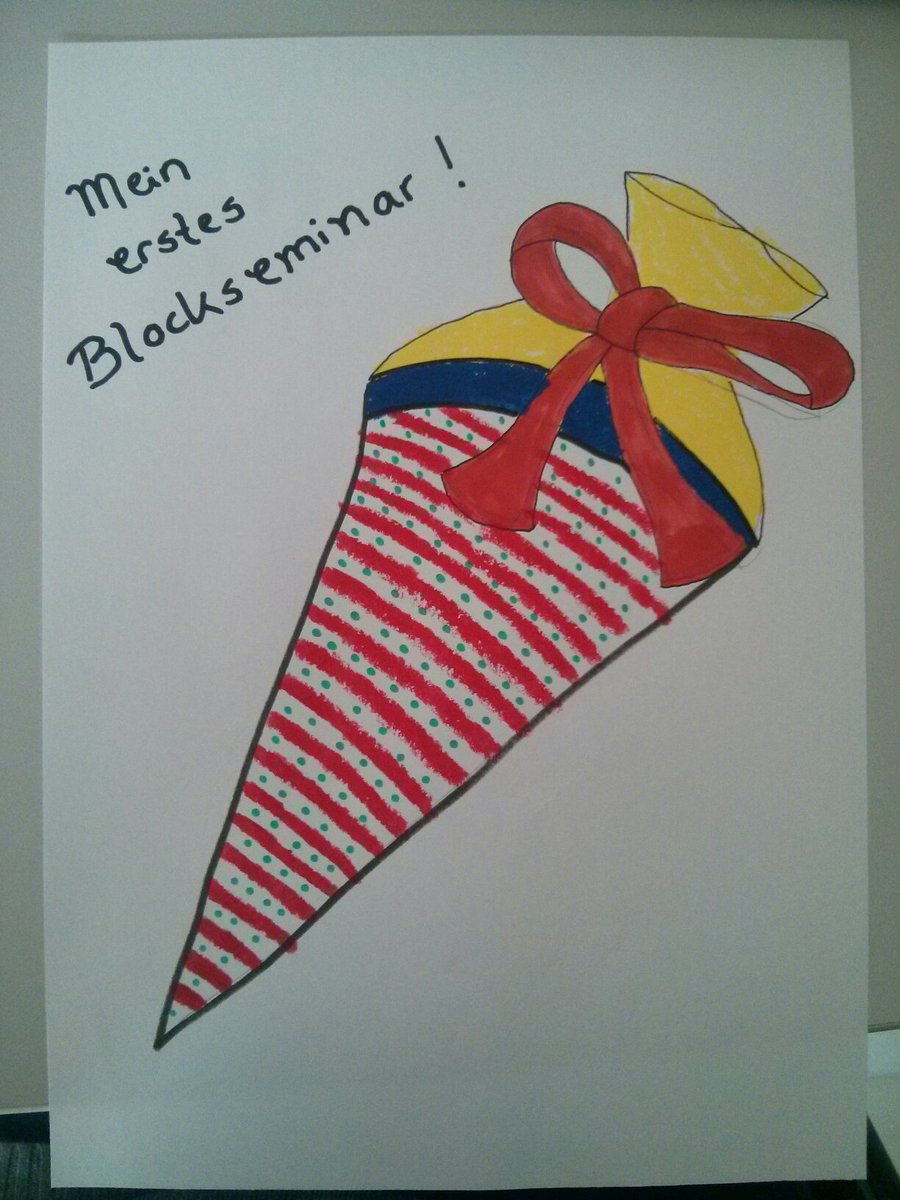 Mein
erstes
Blockseminar!